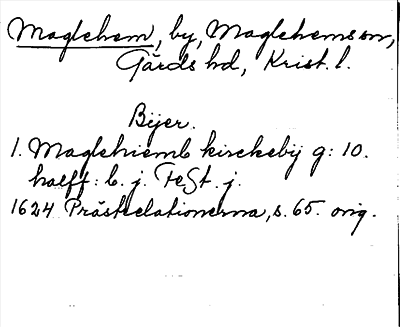 Maglehem, by, Maglehems sn,
Gärds hd, Krist. l.
Bÿer.
1. Maglehiemb kirckebÿ g: 10.
halff: b. j. FeSt. j.
1624 Prästrelationerna, s. 65. orig.